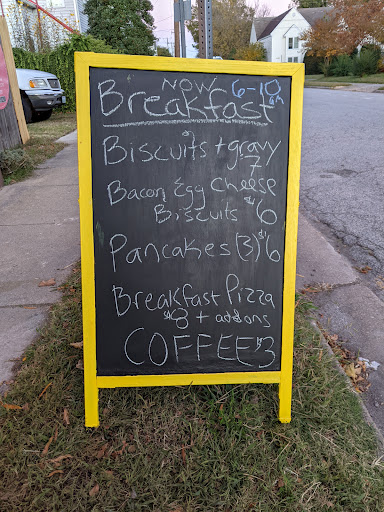 NOW 6-10 am
Breakfast
Biscuits + gravy
$7
Bacon Egg Cheese
Biscuits $6
Pancakes (3) $6
Breakfast Pizza
$8 + addons
COFFEE $3